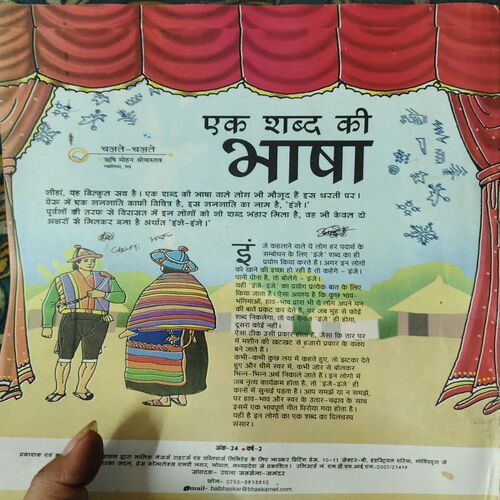 एक शब्द की
भाषा
चलते-चलते
ऋषि मोहन श्रीवास्तव
ग्वालियर, मप्र
जीहां, यह बिल्कुल सच है। एक शब्द की भाषा वाले लोग भी मौजूद हैं इस धरती पर।
पेरू में एक जनजाति काफी विचित्र है, इस जनजाति का नाम है, 'इंजे'।
पूर्वजों की तरफ से विरासत में इन लोगों को जो शब्द भंडार मिला है, वह भी केवल दो
अक्षरों से मिलकर बना है अर्थात 'इंजे-इंजे'।
इंजे कहलाने वाले ये लोग हर पदार्थ के
सम्बोधन के लिए 'इंजे' शब्द का ही
प्रयोग किया करते हैं। अगर इन लोगों
को खाने की इच्छा हो रही है तो कहेंगे - इंजे।
पानी पीना है, तो बोलेंगे - इंजे।
यही 'इंजे-इंजे' का प्रयोग प्रत्येक बात के लिए
किया जाता है। ऐसा अवश्य है कि कुछ भाव-
भंगिमाओं, हाव-भाव द्वारा भी ये लोग अपने मन
की बातें प्रकट कर देते हैं, पर जब मुंह से कोई
शब्द निकलेगा, तो वह केवल 'इंजे' ही होगा,
दूसरा कोई नहीं।
ऐसा ठीक उसी प्रकार होता है, जैसा कि तार घर
में मशीन की खटखट से हजारों प्रकार के वाक्य
बन जाते हैं।
कभी-कभी कुछ लय में कहते हुए, तो झटका देते
हुए और धीमे स्वर में, कभी जोर से बोलकर
भिन्न-भिन्न अर्थ निकाले जाते हैं। इन लोगों में
जब नृत्य कार्यक्रम होता है, तो 'इंजे-इंजे' ही
कानों में सुनाई पड़ता है। आप समझें या न समझें,
पर हाव-भाव और स्वर के उतार-चढ़ाव के साथ
इसमें एक भावपूर्ण गीत पिरोया गया होता है।
यही है इन लोगों के एक शब्द का दिलचस्प
संसार।
अंक-24 वर्ष-2
प्रकाशक एवं
लिमिटेड के लिए भास्कर प्रिंटिंग प्रेस, 10-11 सेक्टर-बी, इंडस्ट्रियल एरिया, गोविंदपुरा से
प्रेस कॉम्प्लेक्स एमपी नगर, भोपाल, मध्यप्रदेश से प्रकाशित।
संपादक- रचना सक्सेना-समंदर
फोन- 0755-3913310
Email- balbhaskar@bhaskarnet.com